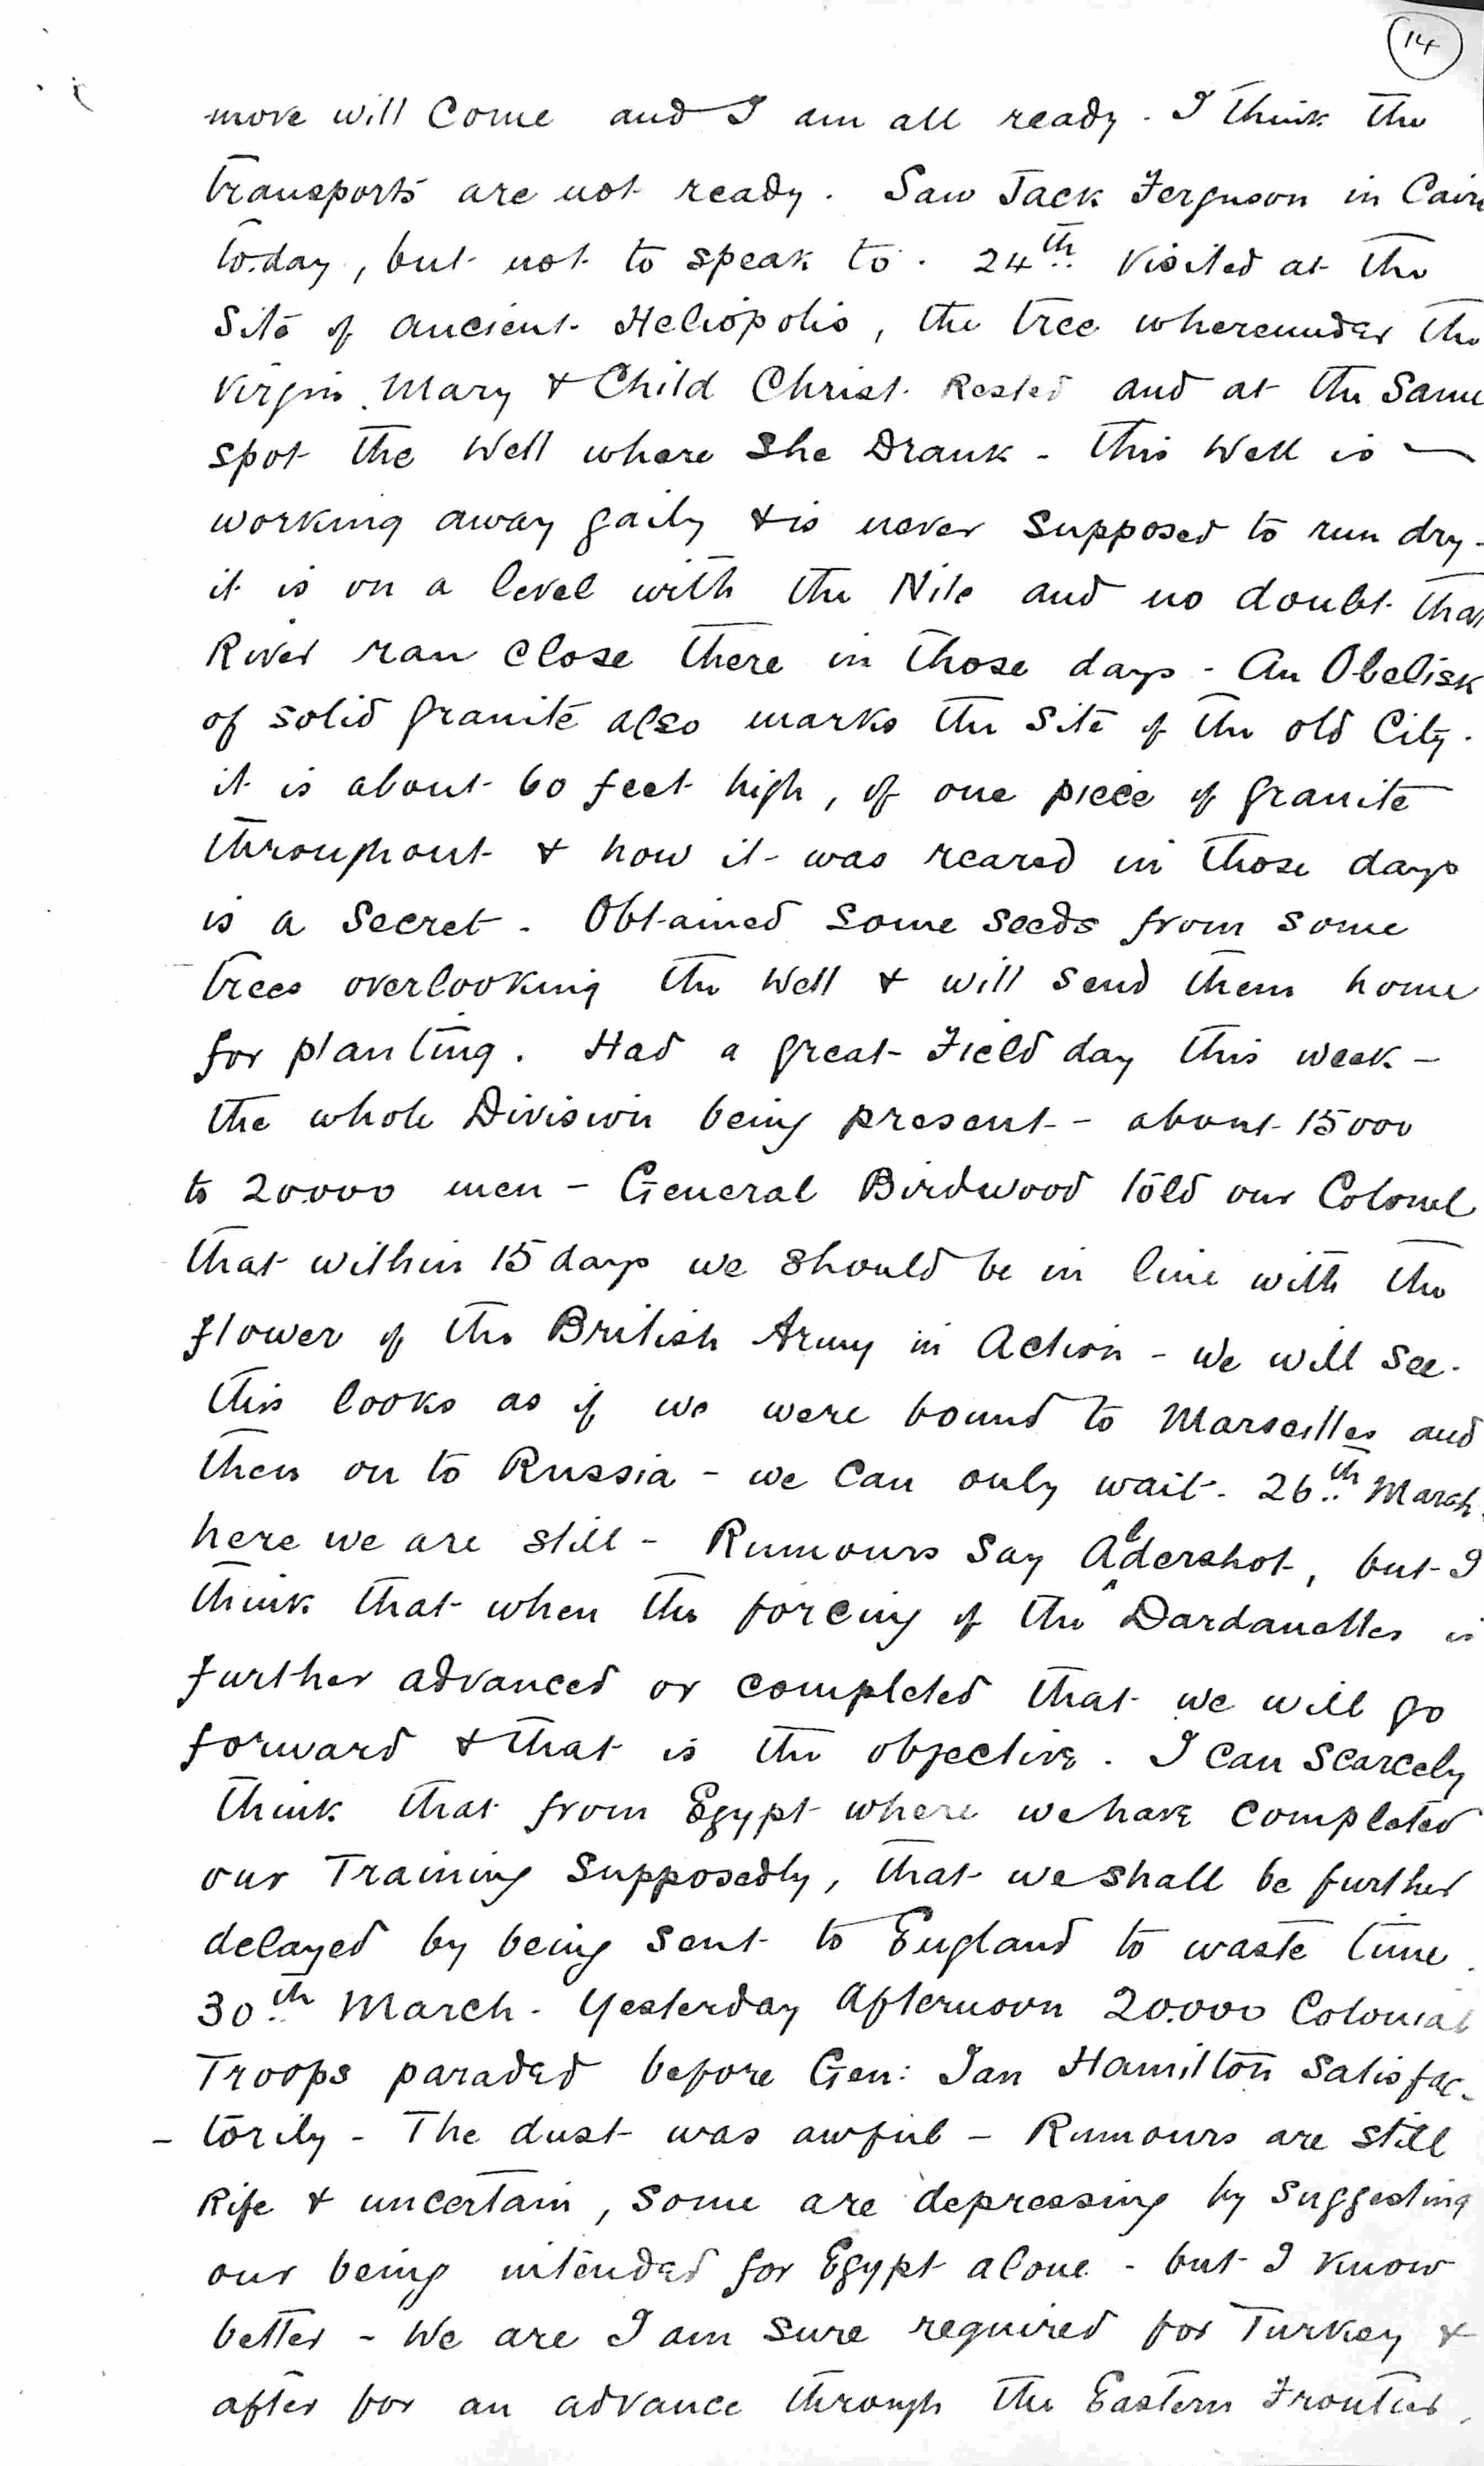 14
more will Come and I am all ready. I think the
transports are not ready. Saw Jack Ferguson in Cairo
to.day, but not to speak to. 24th Visited at the
Site of ancient Heliopolis, the tree whereunder the
Virgin Mary & Child Christ Rested and at the Same
spot the Well where She Drank - this Well is
working away gaily & is never Supposed to run dry -
it is on a level with the Nile and no doubt that
River ran close there in those days - An Obelisk
of solid granite also marks the Site of the old City.
it is about 60 feet high, of one piece of granite
throughout & how it was reared in those days
is a Secret. Obtained Some Seeds from Some
trees overlooking the Well & will Send them home
for planting. Had a great Field day this week -
the whole Division being present - about 15000
to 20.000 men - General Birdwood told our Colonel
that within 15 days we should be in line with the
flower of the British Army in Action - We will See.
this looks as if we were bound to Marseilles and
then on to Russia - we Can only wait. 26th March.
here we are still - Rumours Say Aldershot, but I
think that when the forcing of the Dardanelles is
further advanced or completed that we will go
forward & that is the objective. I Can Scarcely
think that from Egypt where we have Completed
our Training Supposedly, that we shall be further
delayed by being Sent to England to waste time.
30th March. Yesterday Afternoon 20.000 Colonial
Troops paraded before Gen: Ian Hamilton Satisfac-
- torily - The dust was awful - Rumours are still
Rife & uncertain, Some are depressing by Suggesting
our being intended for Egypt alone - but I Know
better - We are I am Sure required for Turkey &
after for an advance through the Eastern Frontier.